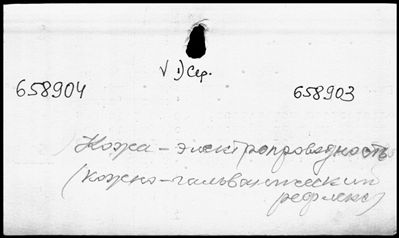 V 1) Сер.
658904 658903
Кожа - электропроводность
(кожно-гальванический
рефлекс)